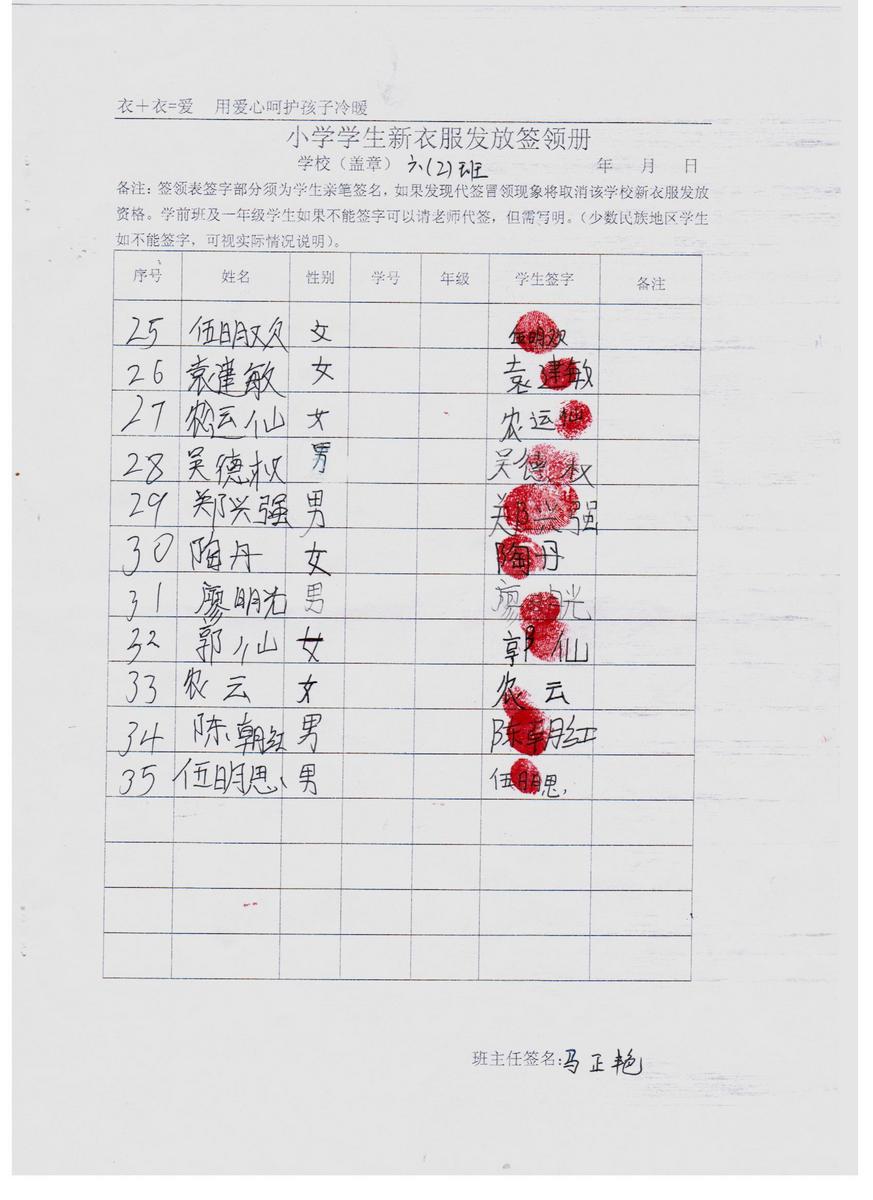 衣＋衣=爱 用爱心呵护孩子冷暖
小学学生新衣服发放签领册
学校（盖章） 六(2)班 年 月 日
备注：签领表签字部分须为学生亲笔签名，如果发现代签冒领现象将取消该学校新衣服发放
资格。学前班及一年级学生如果不能签字可以请老师代签，但需写明。（少数民族地区学生
如不能签字，可视实际情况说明）。
序号 姓名 性别 学号 年级 学生签字 备注
25 伍明双 女 伍明双
26 袁建敏 女 袁建敏
27 农运仙 女 农运仙
28 吴德权 男 吴德权
29 郑兴强 男 郑兴强
30 陶丹 女 陶丹
31 廖明光 男 廖明光
32 郭仙 女 郭仙
33 农云 女 农云
34 陈朝红 男 陈朝红
35 伍明思 男 伍明思
班主任签名:马正艳